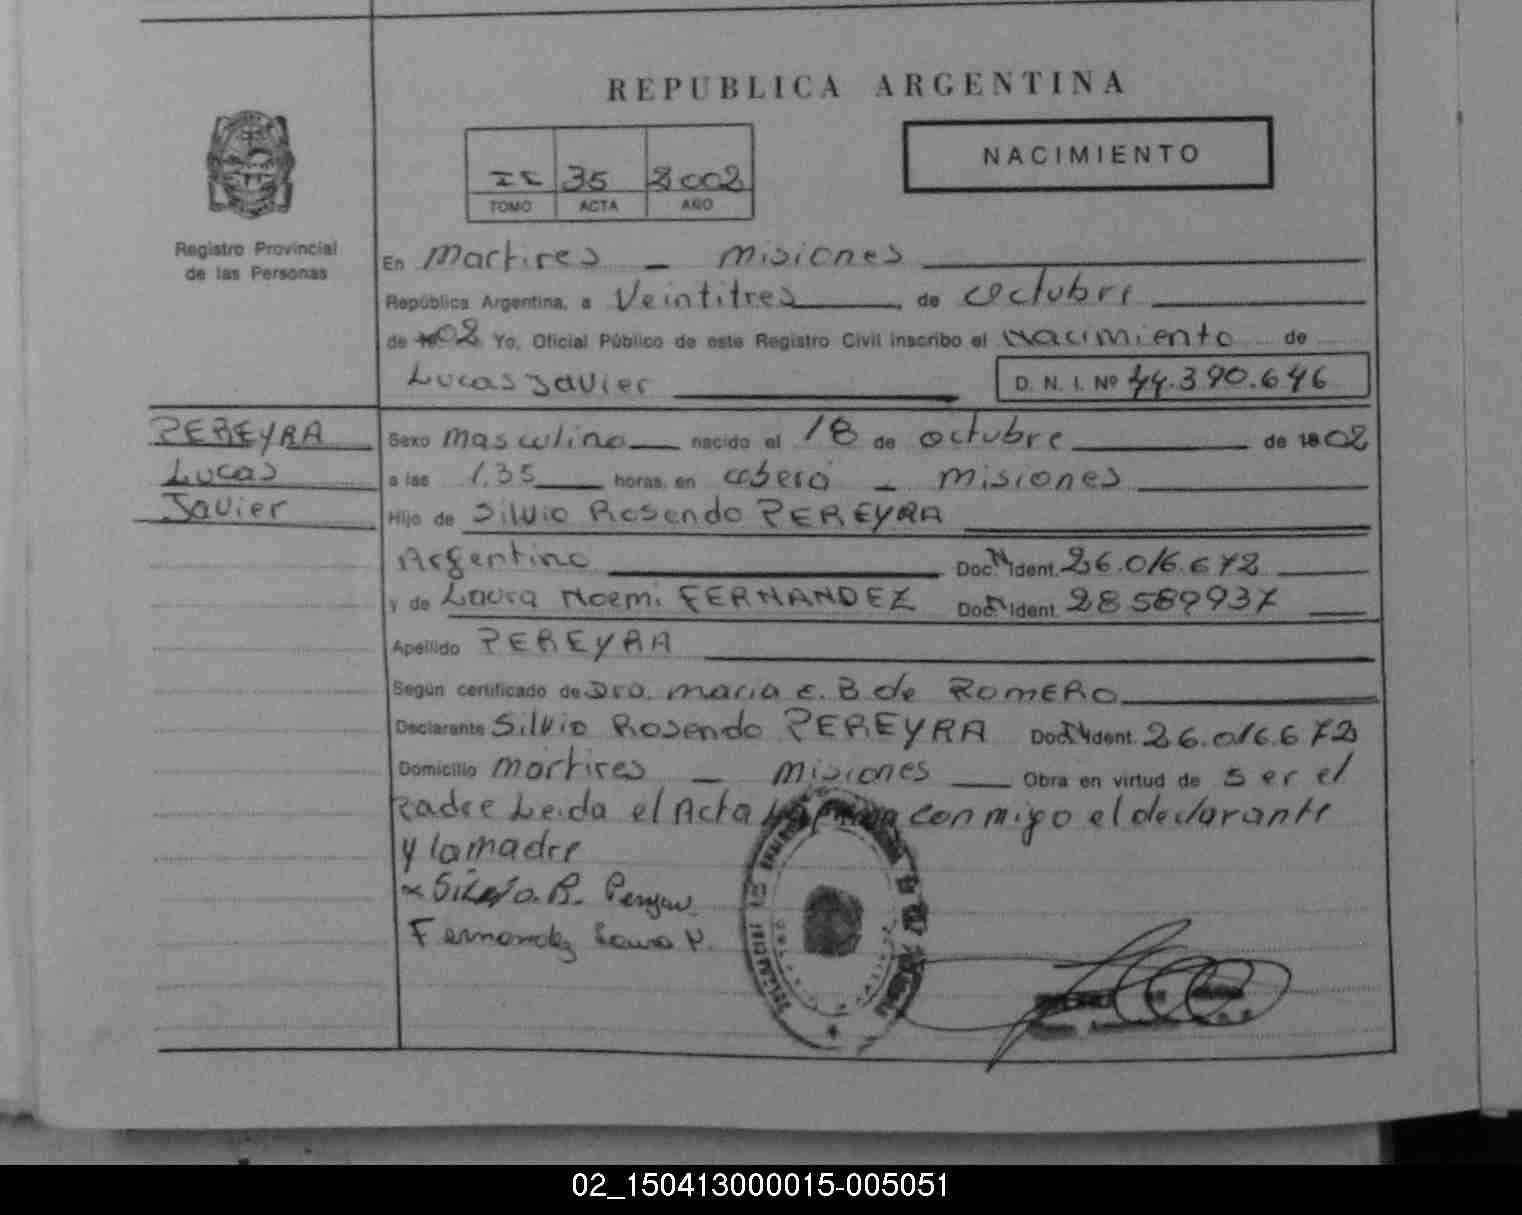 REPUBLICA ARGENTINA
NACIMIENTO
II 35 2002
TOMO ACTA AÑO
Registro Provincial
de las Personas
En Martires - Misiones
República Argentina, a Veintitres de Octubre
de 02 Yo, Oficial Público de este Registro Civil inscribo el Nacimiento de
Lucas Javier D. N. I. Nº 44.390.646
PEREYRA
Lucas
Javier
Sexo Masculino nacido el 18 de octubre de 1802
a las 1,35 horas, en Oberá - Misiones
Hijo de Silvio Rosendo PEREYRA
Argentino Doc. N Ident. 26.016.672
y de Laura Noemi FERNANDEZ Doc. N Ident. 28589937
Apellido PEREYRA
Según certificado de Dra. Maria E. B de ROMERO
Declarante Silvio Rosendo PEREYRA Doc. N Ident. 26.016.672
Domicilio Martires - Misiones Obra en virtud de ser el
Padre Leida el Acta conmigo el declarante
y la madre
Silvio. R.
Fernandez Laura N.
02_150413000015-005051